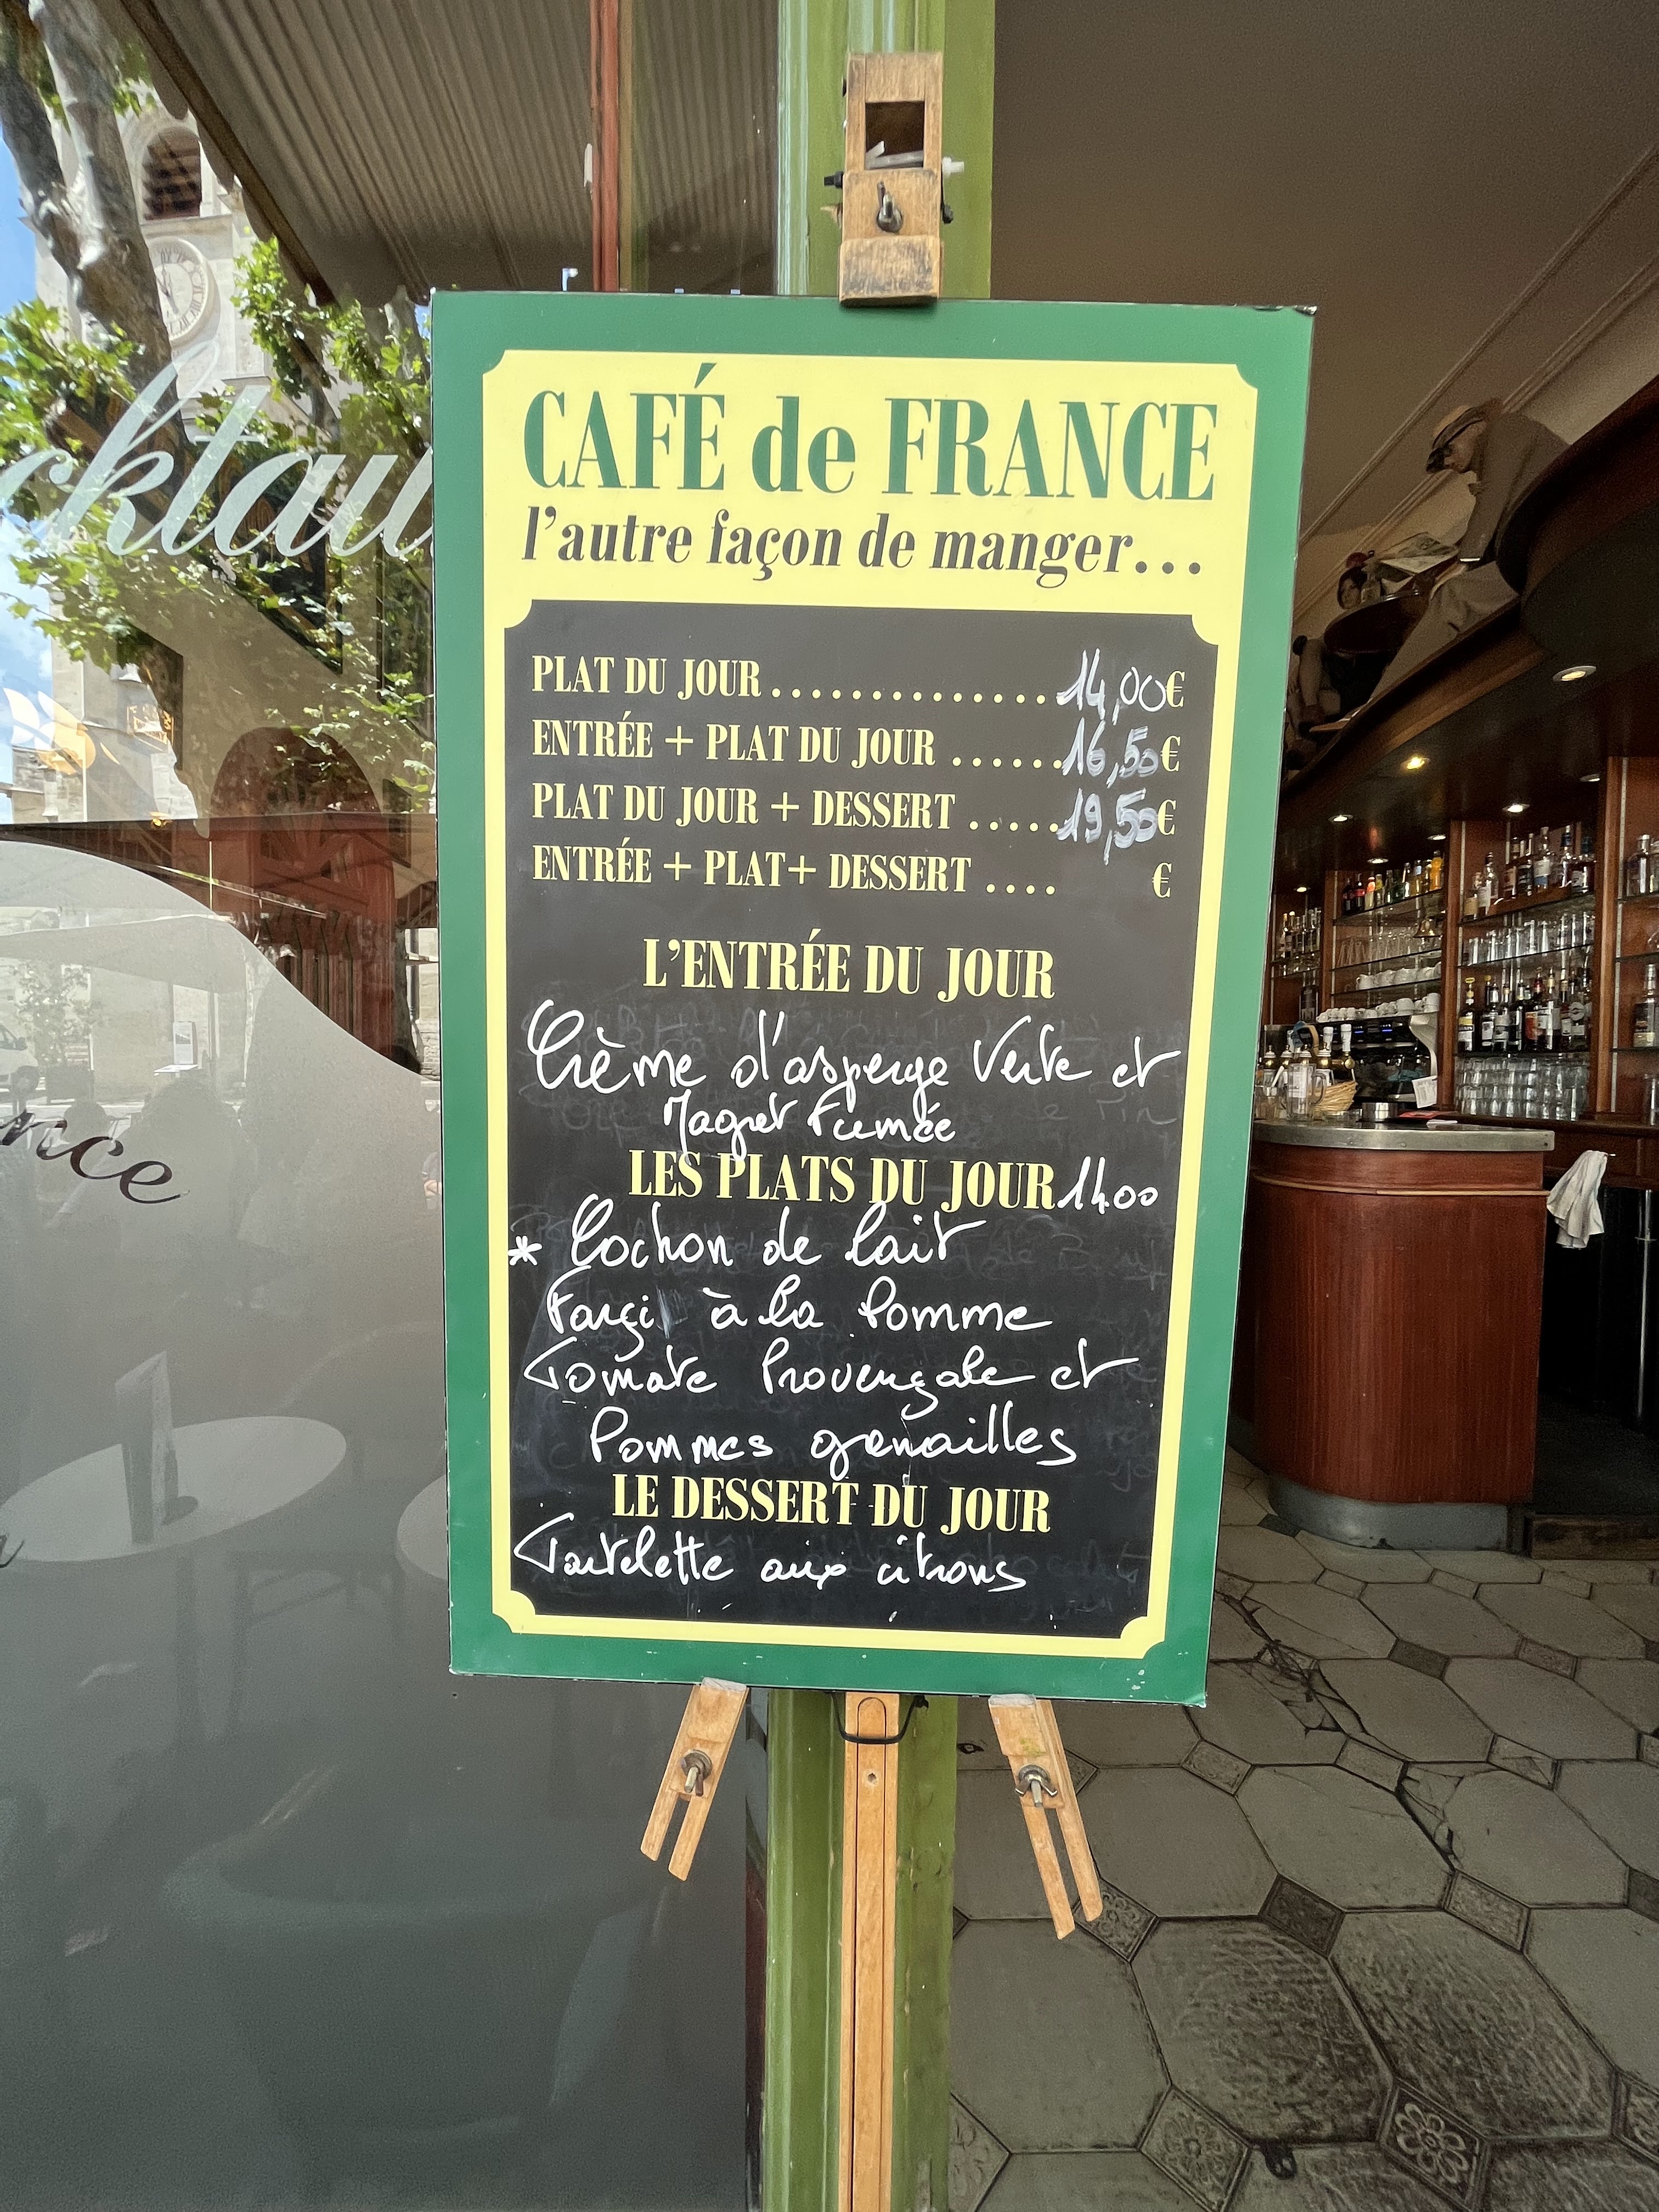 CAFÉ de FRANCE
l'autre façon de manger...
PLAT DU JOUR.............. 14,00€
ENTRÉE + PLAT DU JOUR ...... 16,50€
PLAT DU JOUR + DESSERT ..... 19,50€
ENTRÉE + PLAT+ DESSERT .... €
L'ENTRÉE DU JOUR
Crème d'asperge Verte et
Magret Fumée
LES PLATS DU JOUR 14,00
* Cochon de lait
Farçi à la Pomme
Tomate Provençale et
Pommes grenailles
LE DESSERT DU JOUR
Tartelette aux citrons
cktail
nce